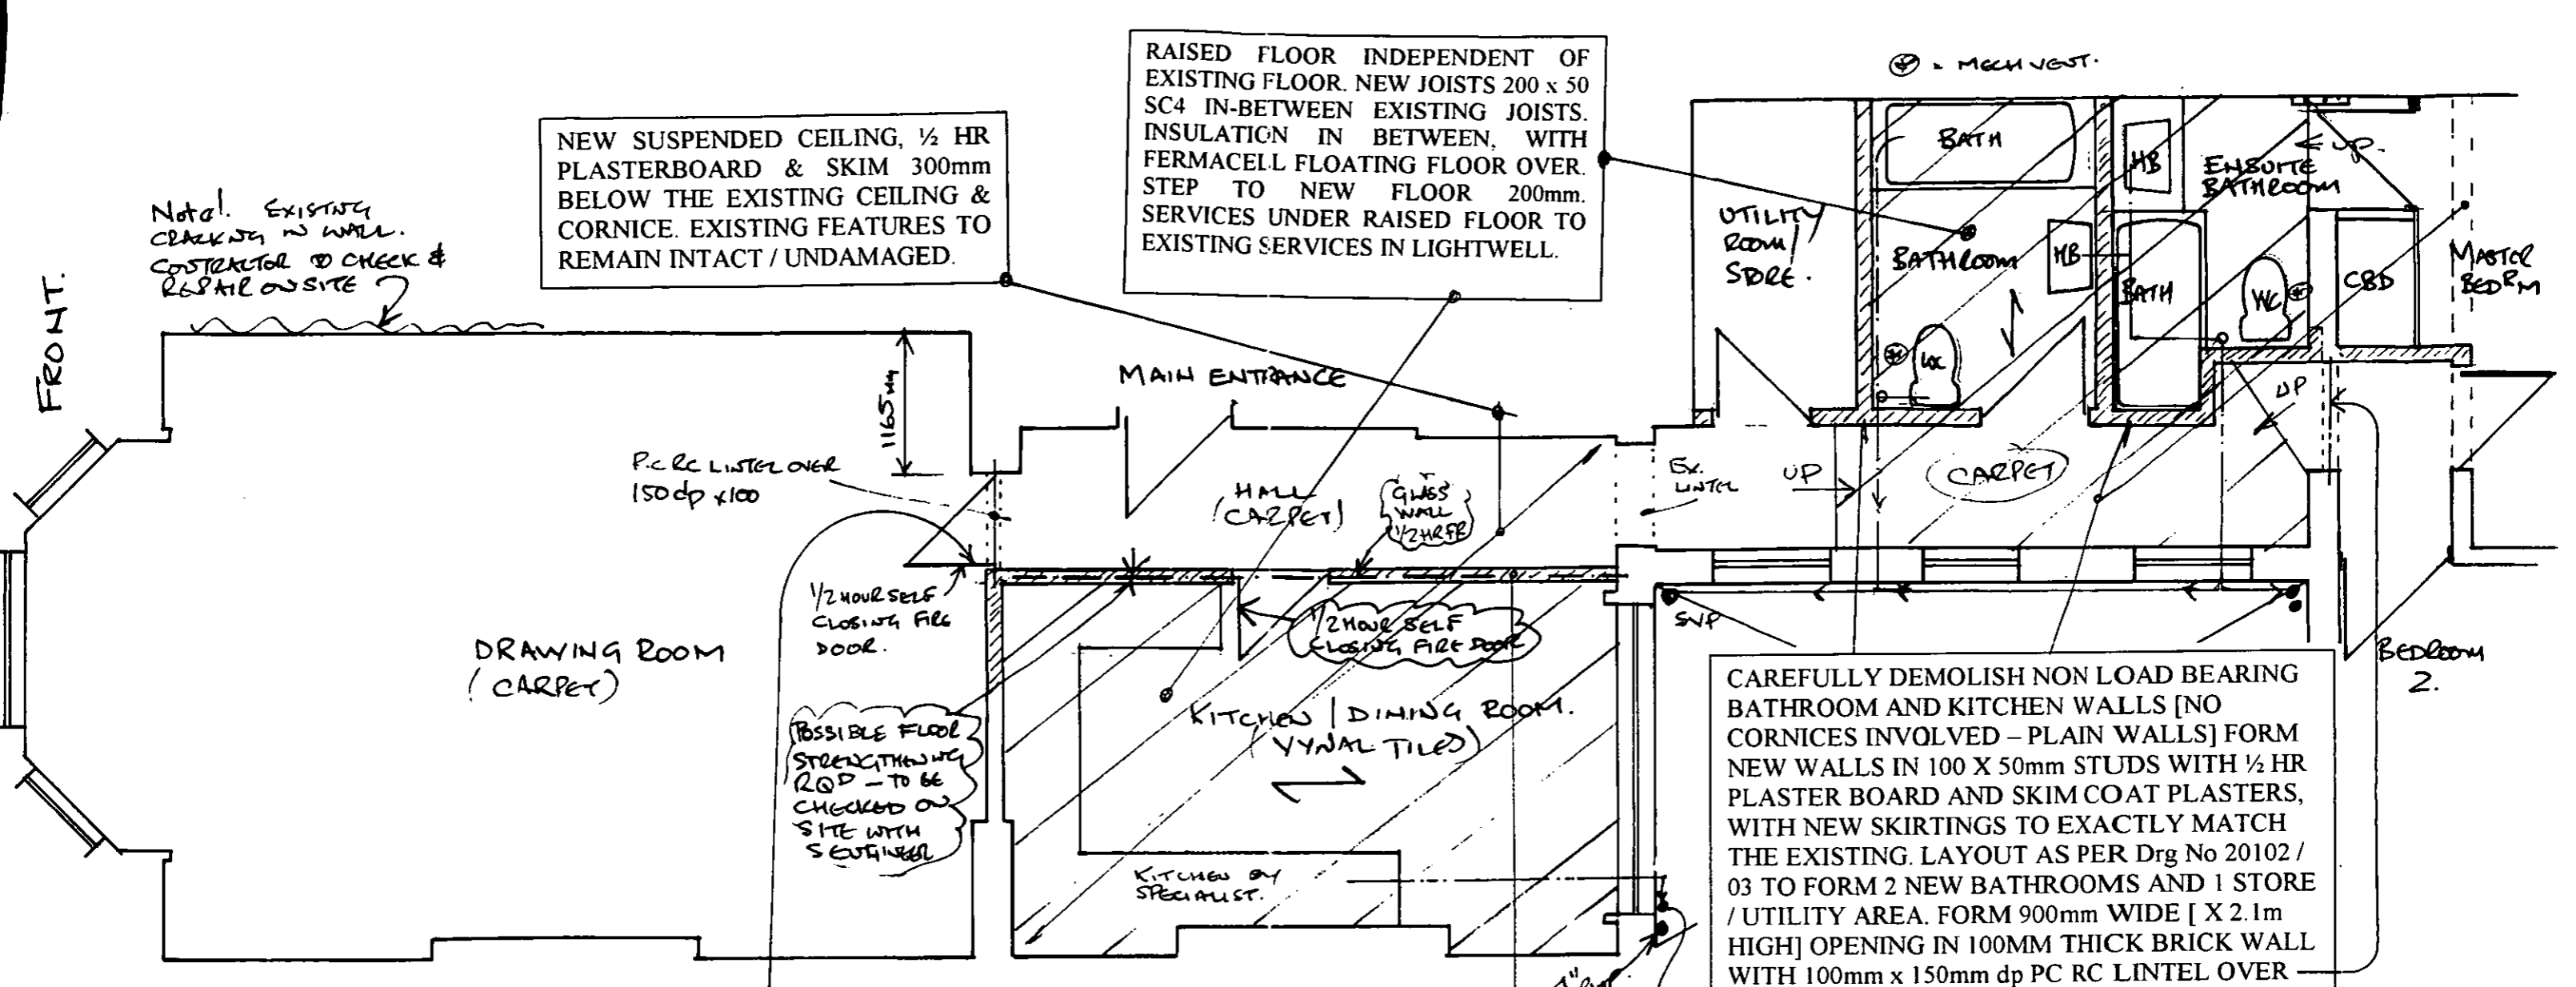 NEW SUSPENDED CEILING, ½ HR
PLASTERBOARD & SKIM 300mm
BELOW THE EXISTING CEILING &
CORNICE. EXISTING FEATURES TO
REMAIN INTACT / UNDAMAGED.
RAISED FLOOR INDEPENDENT OF
EXISTING FLOOR. NEW JOISTS 200 x 50
SC4 IN-BETWEEN EXISTING JOISTS.
INSULATION IN BETWEEN, WITH
FERMACELL FLOATING FLOOR OVER.
STEP TO NEW FLOOR 200mm.
SERVICES UNDER RAISED FLOOR TO
EXISTING SERVICES IN LIGHTWELL.
= MECH VENT.
Note!. EXISTING
CRACKING IN WALL.
CONTRACTOR TO CHECK &
REPAIR ON SITE
FRONT.
1165mm
MAIN ENTRANCE
P.C RC LINTEL OVER
150 dp x100
HALL
(CARPET)
GLASS
WALL
1/2 HR FR
EX.
LINTEL
UP
CARPET
UTILITY
ROOM/
STORE.
BATH
BATHROOM
HB
WC
HB
BATH
ENSUITE
BATHROOM
UP
WC
CBD
MASTER
BEDRM
UP
1/2 HOUR SELF
CLOSING FIRE
DOOR.
1/2 HOUR SELF
CLOSING FIRE DOOR
DRAWING ROOM
(CARPET)
POSSIBLE FLOOR
STRENGTHENING
RQD – TO BE
CHECKED ON
SITE WITH
S ENGINEER
KITCHEN / DINING ROOM.
(VYNAL TILES)
KITCHEN BY
SPECIALIST.
SVP
BEDROOM
2.
CAREFULLY DEMOLISH NON LOAD BEARING
BATHROOM AND KITCHEN WALLS [NO
CORNICES INVOLVED – PLAIN WALLS] FORM
NEW WALLS IN 100 X 50mm STUDS WITH ½ HR
PLASTER BOARD AND SKIM COAT PLASTERS,
WITH NEW SKIRTINGS TO EXACTLY MATCH
THE EXISTING. LAYOUT AS PER Drg No 20102 /
03 TO FORM 2 NEW BATHROOMS AND 1 STORE
/ UTILITY AREA. FORM 900mm WIDE [ X 2.1m
HIGH] OPENING IN 100MM THICK BRICK WALL
WITH 100mm x 150mm dp PC RC LINTEL OVER